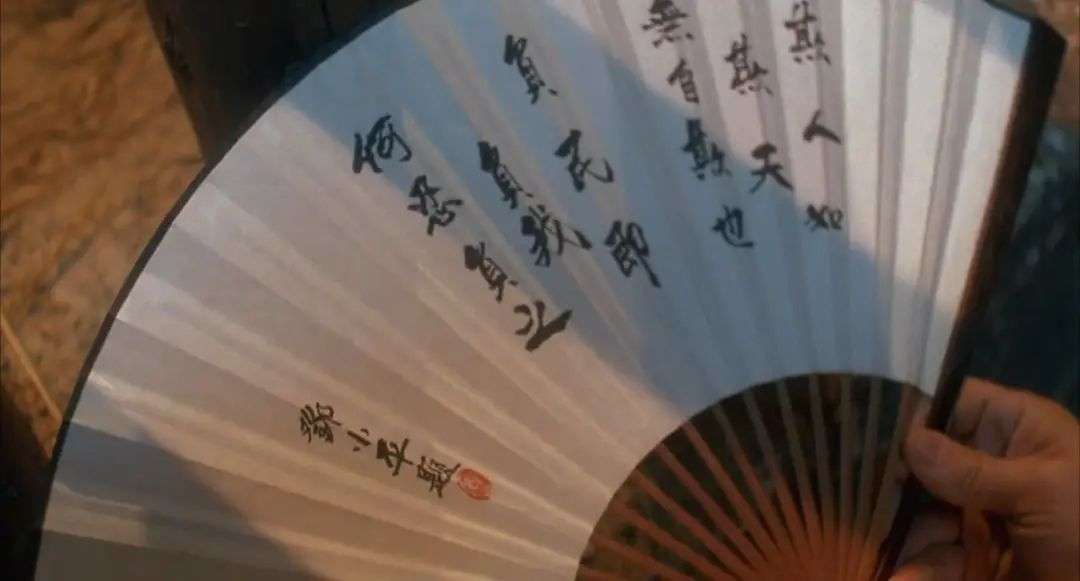 欺人如
欺天
無自欺也
負民即
負我
何忍負之
鄧小平題